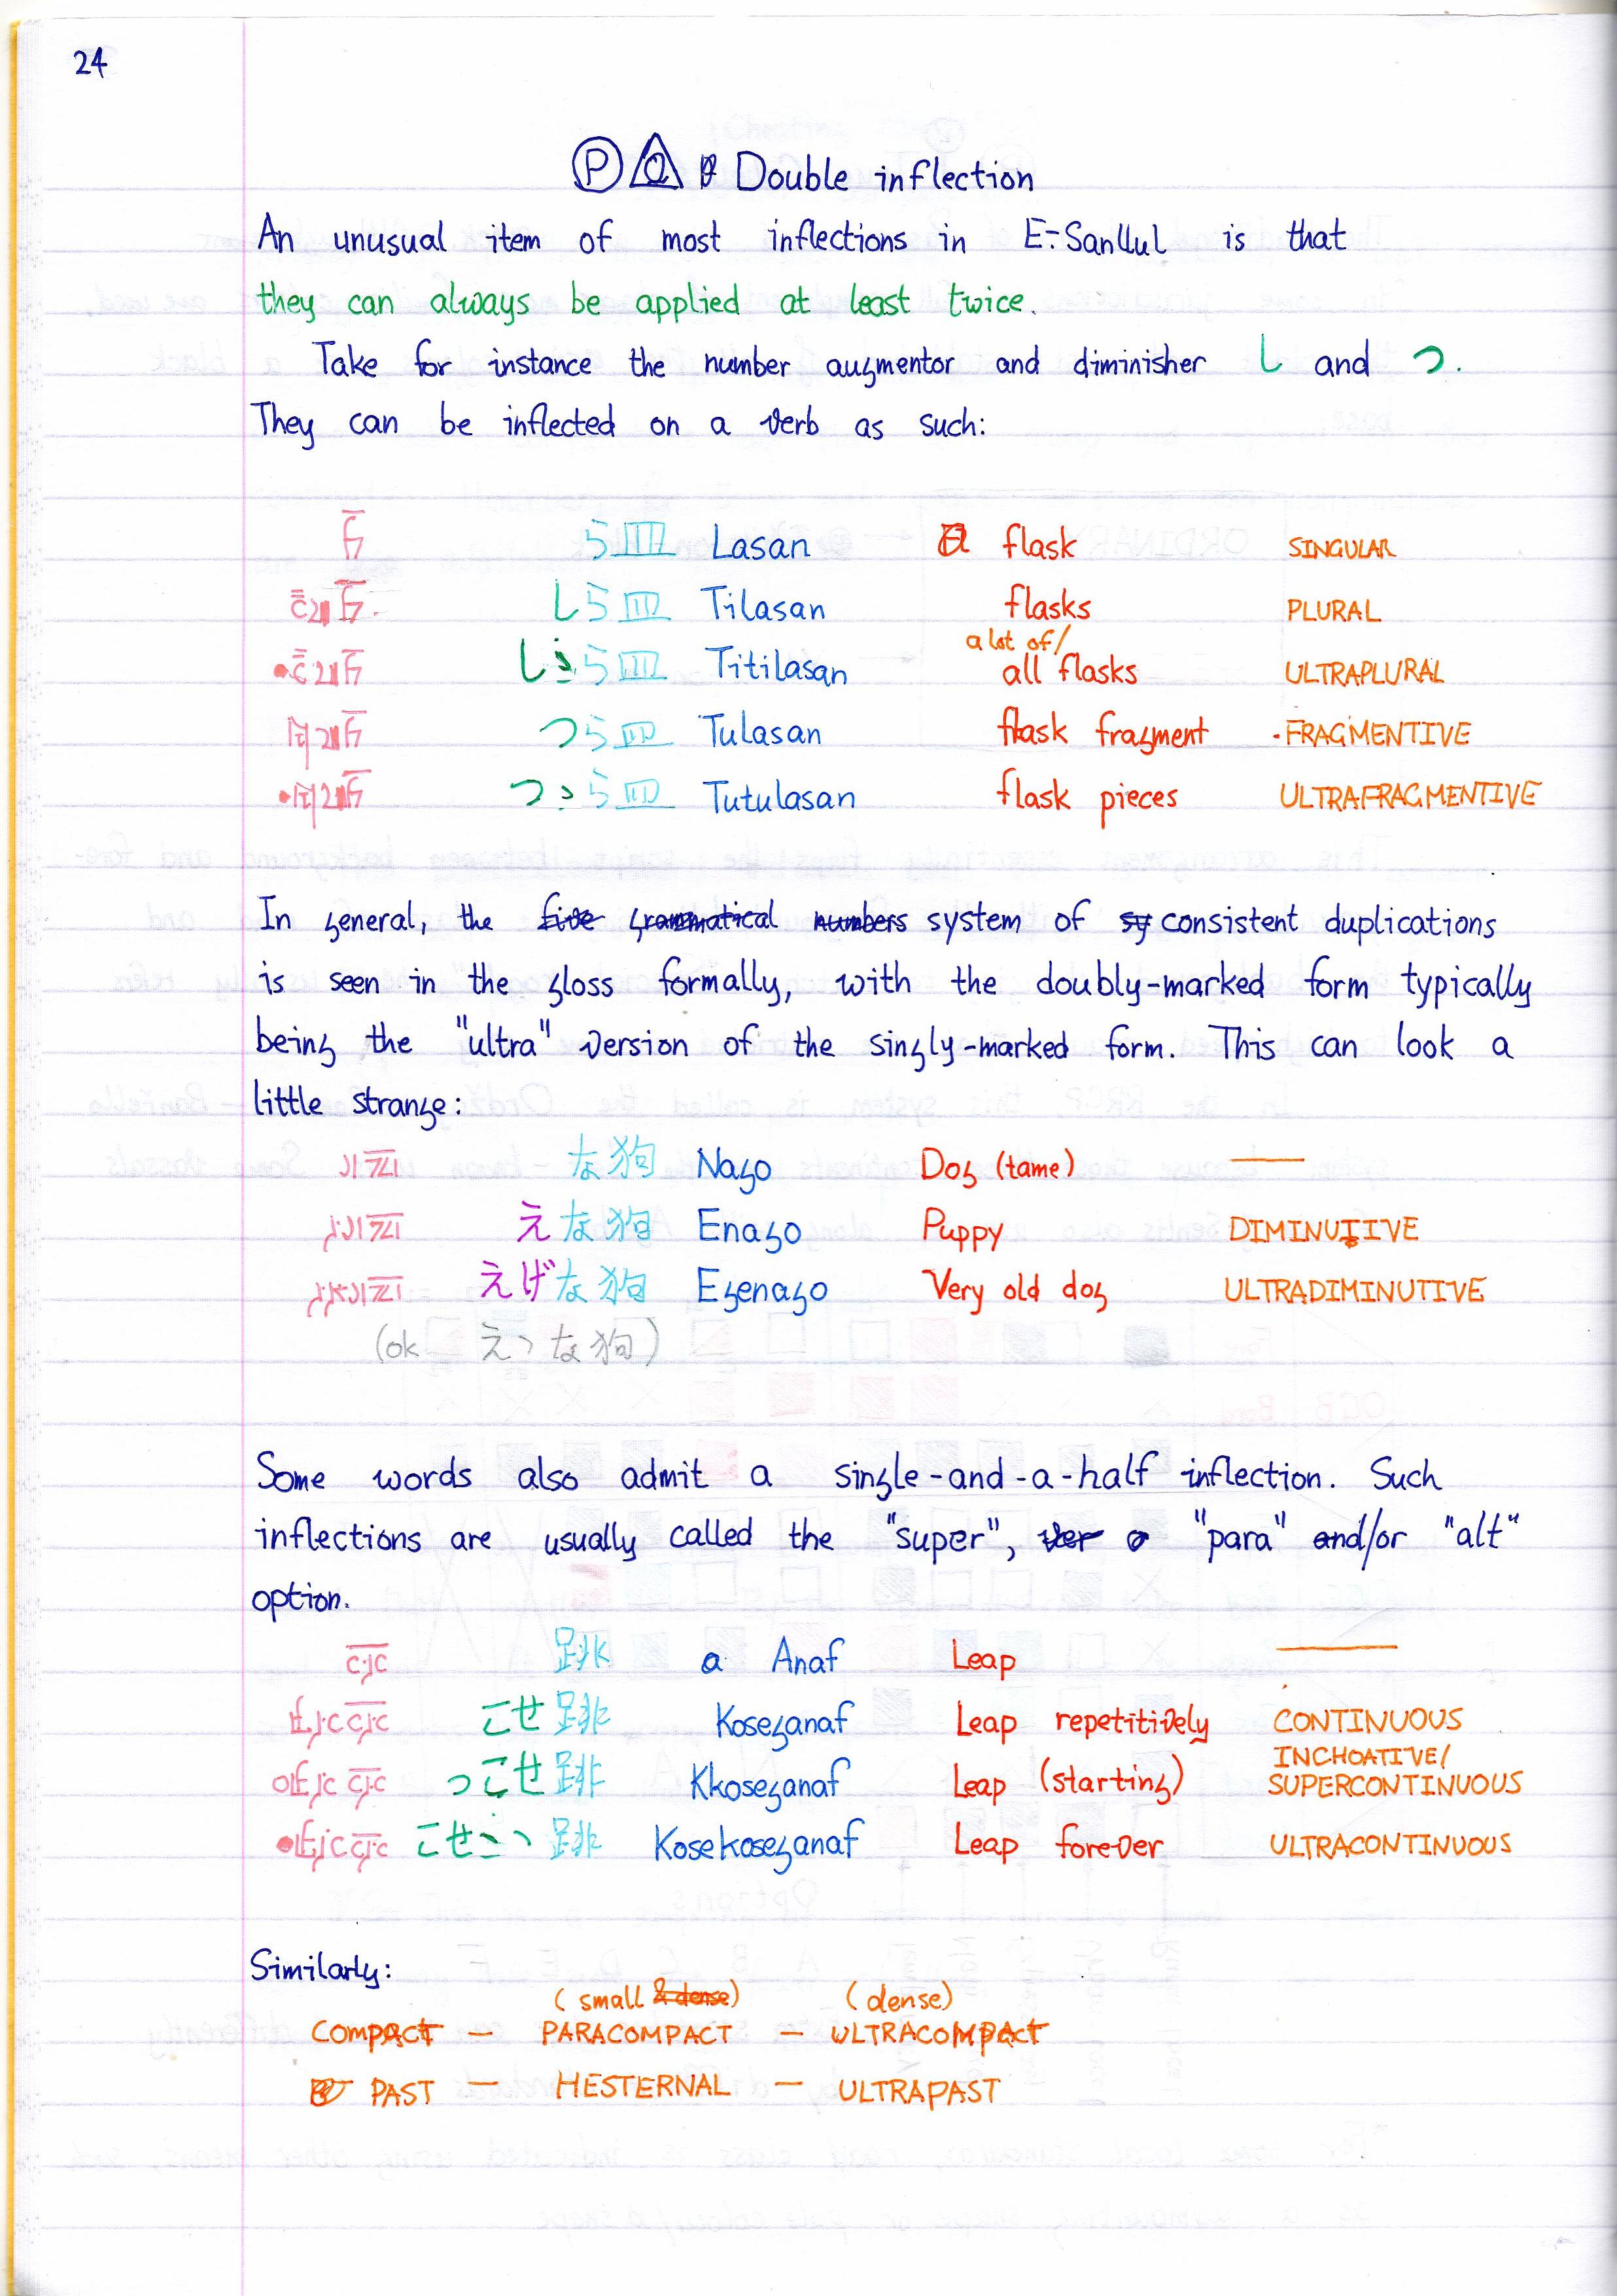 24
Ⓟ Q Double inflection
An unusual item of most inflections in E-Sanllul is that
they can always be applied at least twice.
Take for instance the number augmentor and diminisher し and つ.
They can be inflected on a verb as such:
ら皿 Lasan flask SINGULAR
しら皿 Tilasan flasks PLURAL
a lot of/
しゝら皿 Titilasan all flasks ULTRAPLURAL
つら皿 Tulasan flask fragment FRAGMENTIVE
つゝら皿 Tutulasan flask pieces ULTRAFRAGMENTIVE
In general, the five grammatical numbers system of sy consistent duplications
is seen in the gloss formally, with the doubly-marked form typically
being the "ultra" version of the singly-marked form. This can look a
little strange:
な狗 Nago Dog (tame) —
えな狗 Enago Puppy DIMINUTIVE
えげな狗 Egenago Very old dog ULTRADIMINUTIVE
(ok えヽな狗)
Some words also admit a single-and-a-half inflection. Such
inflections are usually called the "super", ver o "para" and/or "alt"
option.
跳 a Anaf Leap —
こせ跳 Koseganaf Leap repetitively CONTINUOUS
INCHOATIVE/
っこせ跳 Kkoseganaf Leap (starting) SUPERCONTINUOUS
こせゝヽ跳 Kosekoseganaf Leap forever ULTRACONTINUOUS
Similarly:
(small & dense) (dense)
COMPACT — PARACOMPACT — ULTRACOMPACT
PAST — HESTERNAL — ULTRAPAST